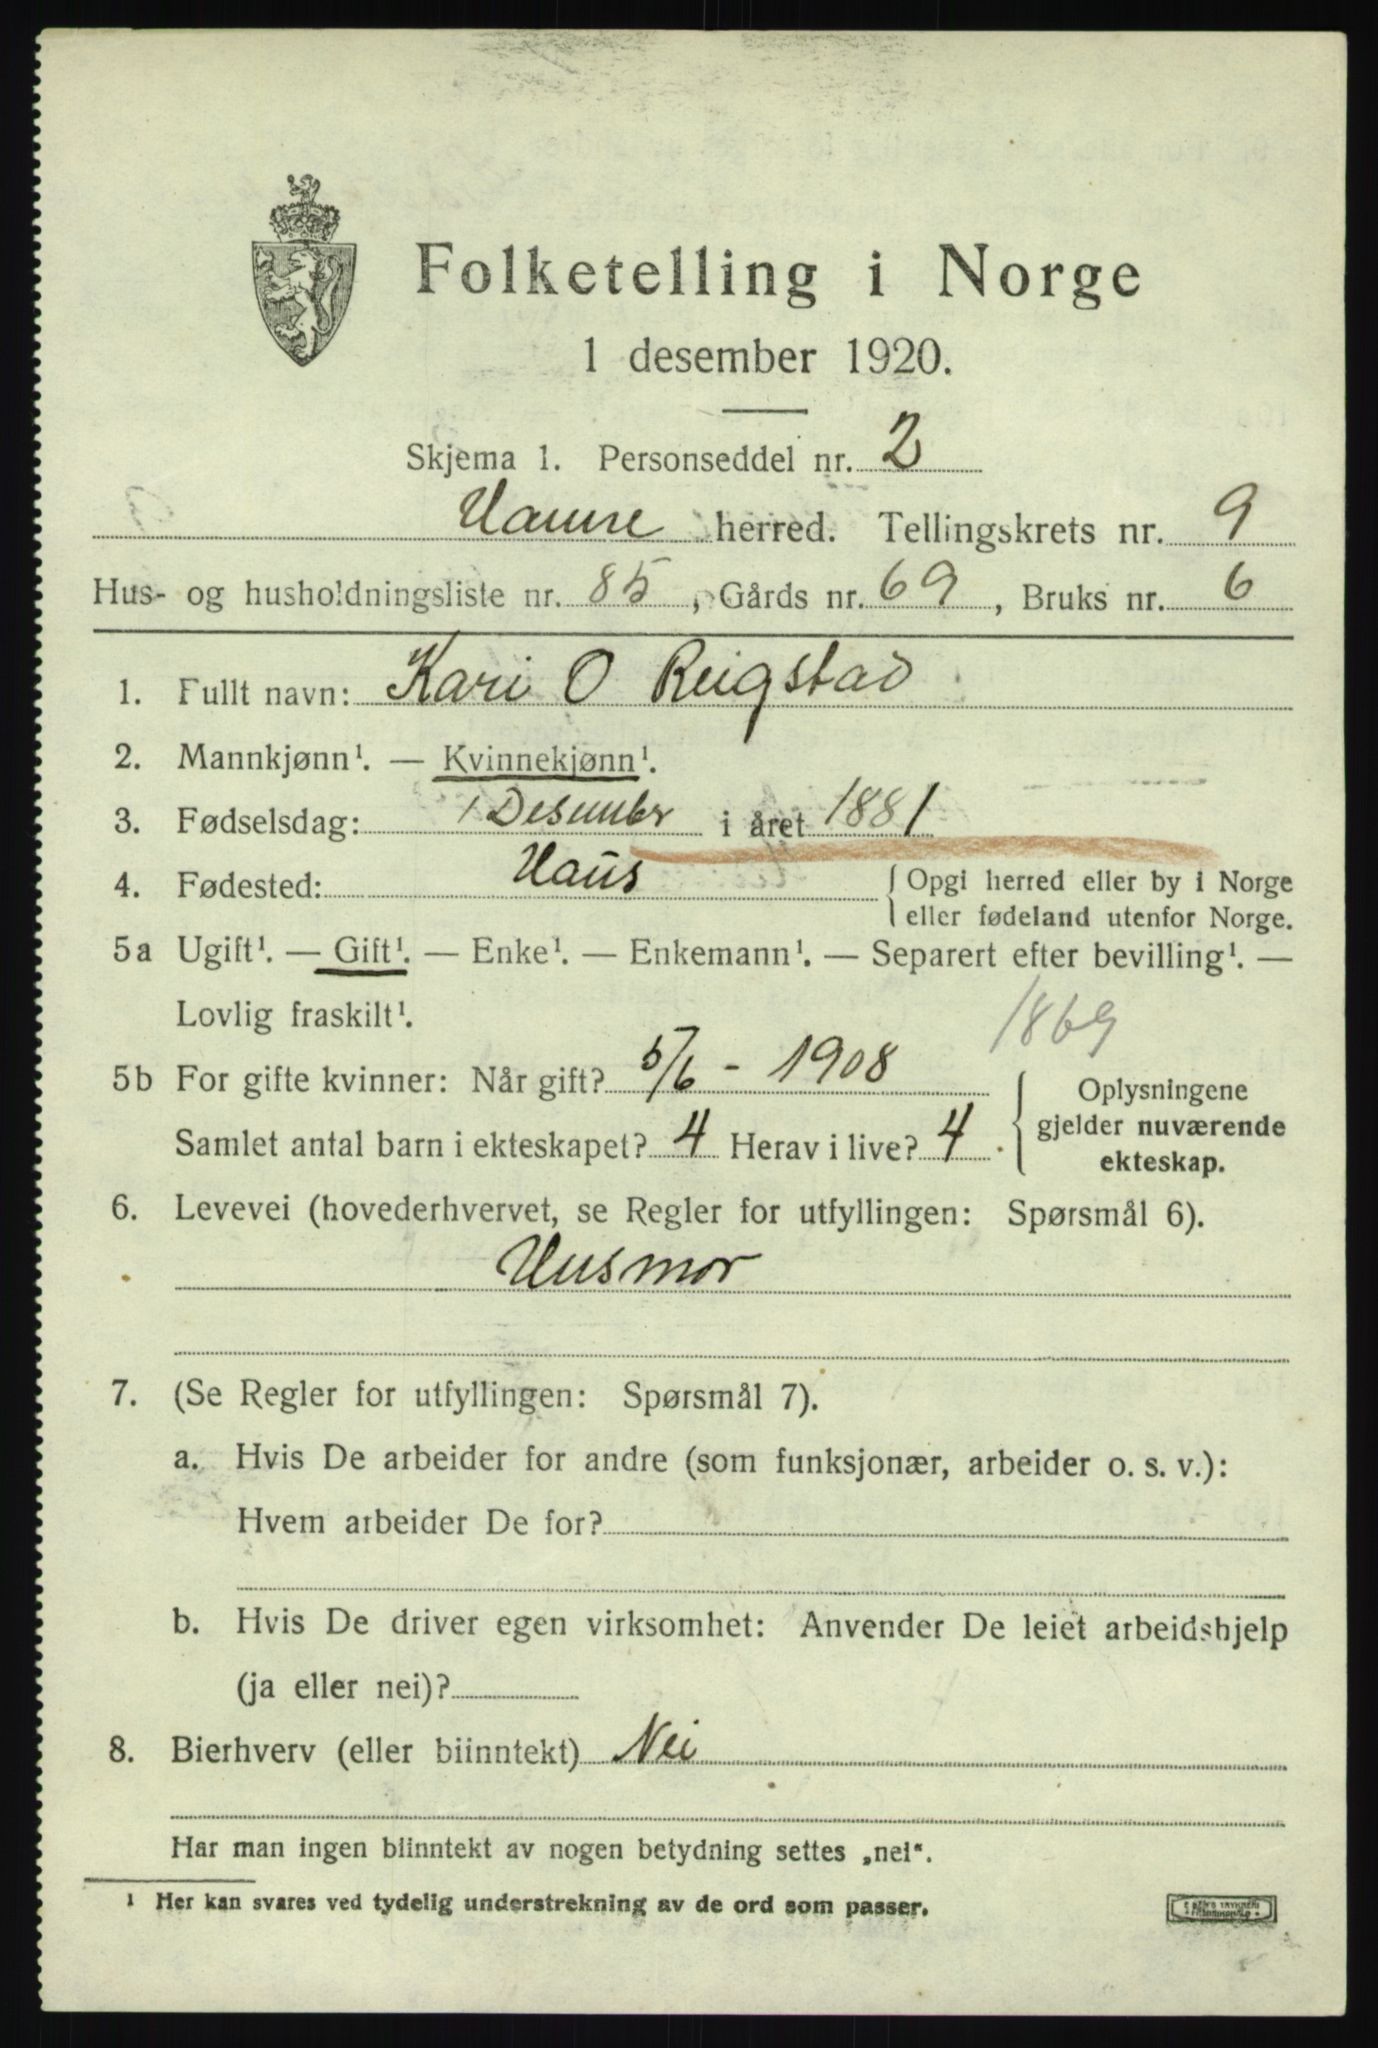 Folketelling i Norge
1 desember 1920.
Skjema 1. Personseddel nr. 2
Hamre herred. Tellingskrets nr. 9
Hus- og husholdningsliste nr. 85, Gårds nr. 69, Bruks nr. 6
1. Fullt navn: Kari O Reigstad
2. Mannkjønn¹. — Kvinnekjønn¹.
3. Fødselsdag: 1 Desember i året 1881
4. Fødested: Haus { Opgi herred eller by i Norge
eller fødeland utenfor Norge.
5a Ugift¹. — Gift¹. — Enke¹. — Enkemann¹. — Separert efter bevilling¹. —
Lovlig fraskilt¹.
1869
5b For gifte kvinner: Når gift? 5/6 - 1908
Samlet antal barn i ekteskapet? 4 Herav i live? 4.
Oplysningene
gjelder nuværende
ekteskap.
6. Levevei (hovederhvervet, se Regler for utfyllingen: Spørsmål 6).
Husmor
7. (Se Regler for utfyllingen: Spørsmål 7).
a. Hvis De arbeider for andre (som funksjonær, arbeider o. s. v.):
Hvem arbeider De for?
b. Hvis De driver egen virksomhet: Anvender De leiet arbeidshjelp
(ja eller nei)?
8. Bierhverv (eller biinntekt) Nei
Har man ingen biinntekt av nogen betydning settes „nei“.
¹ Her kan svares ved tydelig understrekning av de ord som passer.